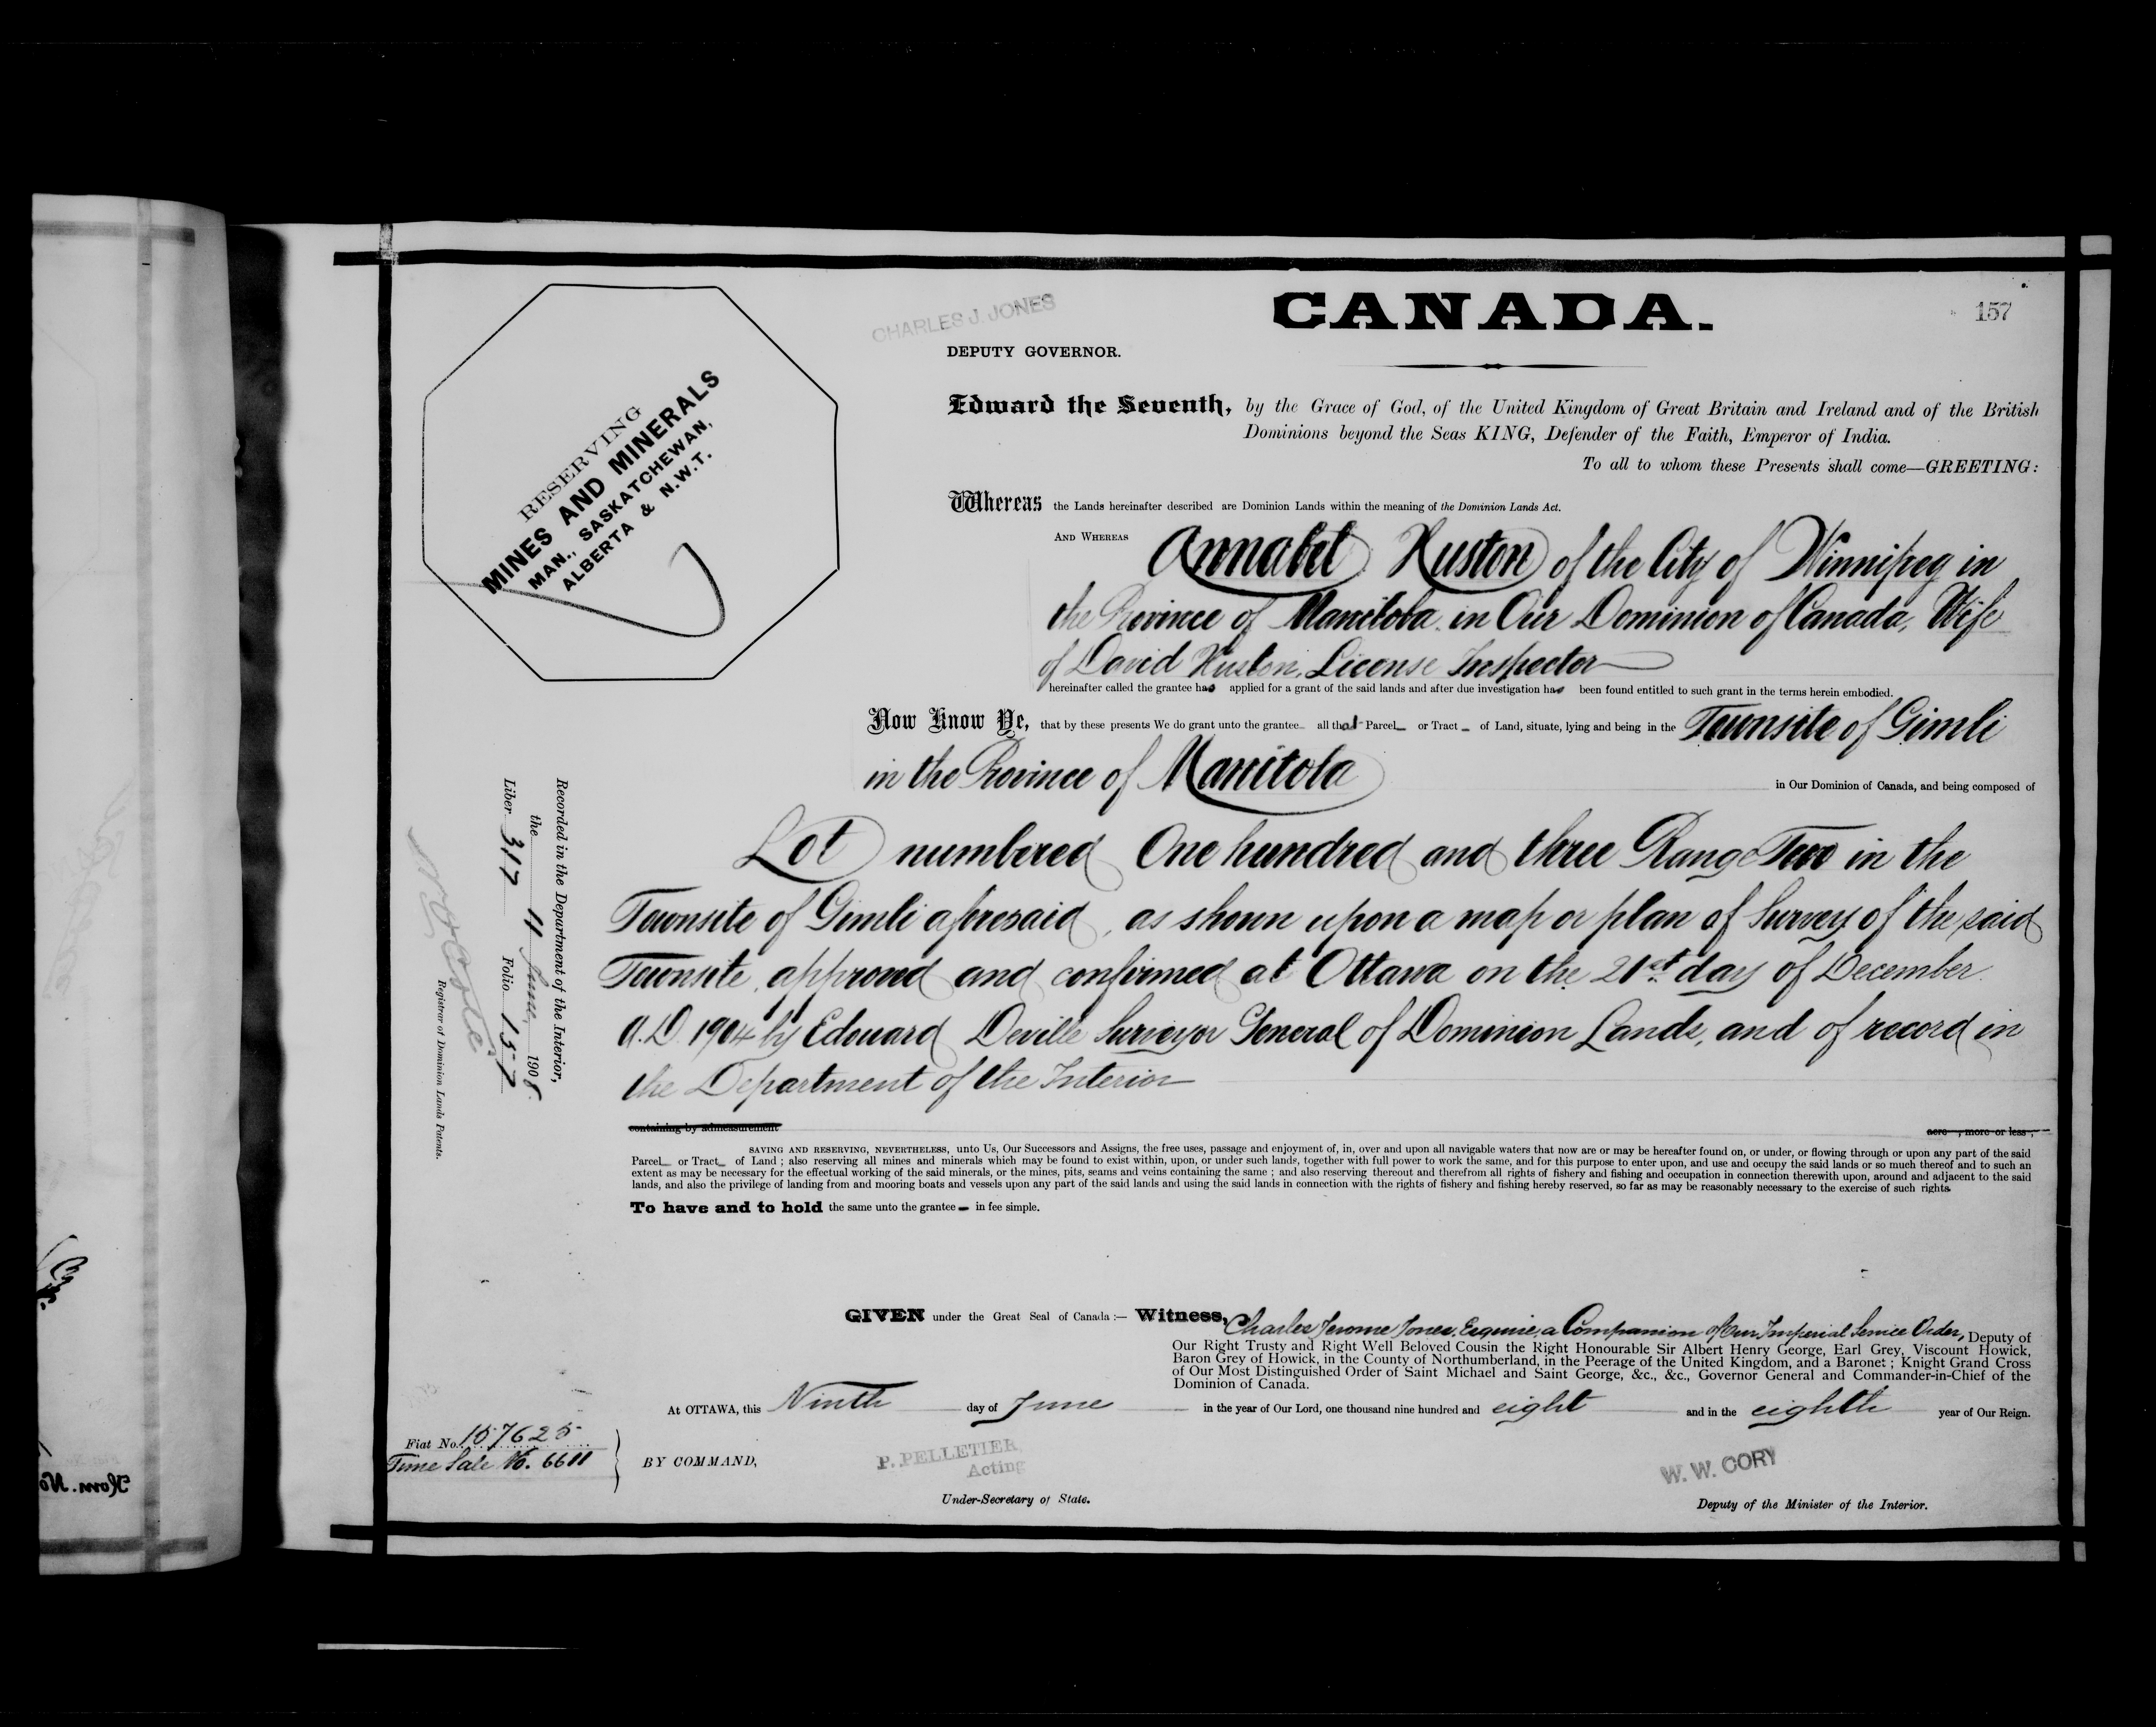 CHARLES J. JONES
CANADA.
157
DEPUTY GOVERNOR.
RESERVING
MINES AND MINERALS
MAN., SASKATCHEWAN,
ALBERTA & N.W.T.
Edward the Seventh, by the Grace of God, of the United Kingdom of Great Britain and Ireland and of the British
Dominions beyond the Seas KING, Defender of the Faith, Emperor of India.
To all to whom these Presents shall come—GREETING:
Whereas the Lands hereinafter described are Dominion Lands within the meaning of the Dominion Lands Act.
AND WHEREAS Annabel Huston of the City of Winnipeg in
the Province of Manitoba in Our Dominion of Canada, Wife
of David Huston, License Inspector
hereinafter called the grantee has applied for a grant of the said lands and after due investigation has been found entitled to such grant in the terms herein embodied.
Now Know Ye, that by these presents We do grant unto the grantee all that Parcel or Tract of Land, situate, lying and being in the Townsite of Gimli
in the Province of Manitoba in Our Dominion of Canada, and being composed of
Lot numbered One hundred and three Range Two in the
Townsite of Gimli aforesaid, as shown upon a map or plan of Survey of the said
Townsite, approved and confirmed at Ottawa on the 21st day of December
A.D. 1904 by Edouard Deville Surveyor General of Dominion Lands, and of record in
the Department of the Interior
containing by admeasurement acre , more or less ;
SAVING AND RESERVING, NEVERTHELESS, unto Us, Our Successors and Assigns, the free uses, passage and enjoyment of, in, over and upon all navigable waters that now are or may be hereafter found on, or under, or flowing through or upon any part of the said
Parcel or Tract of Land ; also reserving all mines and minerals which may be found to exist within, upon, or under such lands, together with full power to work the same, and for this purpose to enter upon, and use and occupy the said lands or so much thereof and to such an
extent as may be necessary for the effectual working of the said minerals, or the mines, pits, seams and veins containing the same ; and also reserving thereout and therefrom all rights of fishery and fishing and occupation in connection therewith upon, around and adjacent to the said
lands, and also the privilege of landing from and mooring boats and vessels upon any part of the said lands and using the said lands in connection with the rights of fishery and fishing hereby reserved, so far as may be reasonably necessary to the exercise of such rights.
To have and to hold the same unto the grantee in fee simple.
Recorded in the Department of the Interior,
the 11 June 1908.
Liber 317 Folio 157
Registrar of Dominion Lands Patents.
GIVEN under the Great Seal of Canada :— Witness, Charles Jerome Jones, Esquire, a Companion of Our Imperial Service Order, Deputy of
Our Right Trusty and Right Well Beloved Cousin the Right Honourable Sir Albert Henry George, Earl Grey, Viscount Howick,
Baron Grey of Howick, in the County of Northumberland, in the Peerage of the United Kingdom, and a Baronet ; Knight Grand Cross
of Our Most Distinguished Order of Saint Michael and Saint George, &c., &c., Governor General and Commander-in-Chief of the
Dominion of Canada.
At OTTAWA, this Ninth day of June in the year of Our Lord, one thousand nine hundred and eight and in the eighth year of Our Reign.
Fiat No. 157625
Time Sale No. 6611
BY COMMAND,
P. PELLETIER,
Acting
Under-Secretary of State.
W. W. CORY
Deputy of the Minister of the Interior.